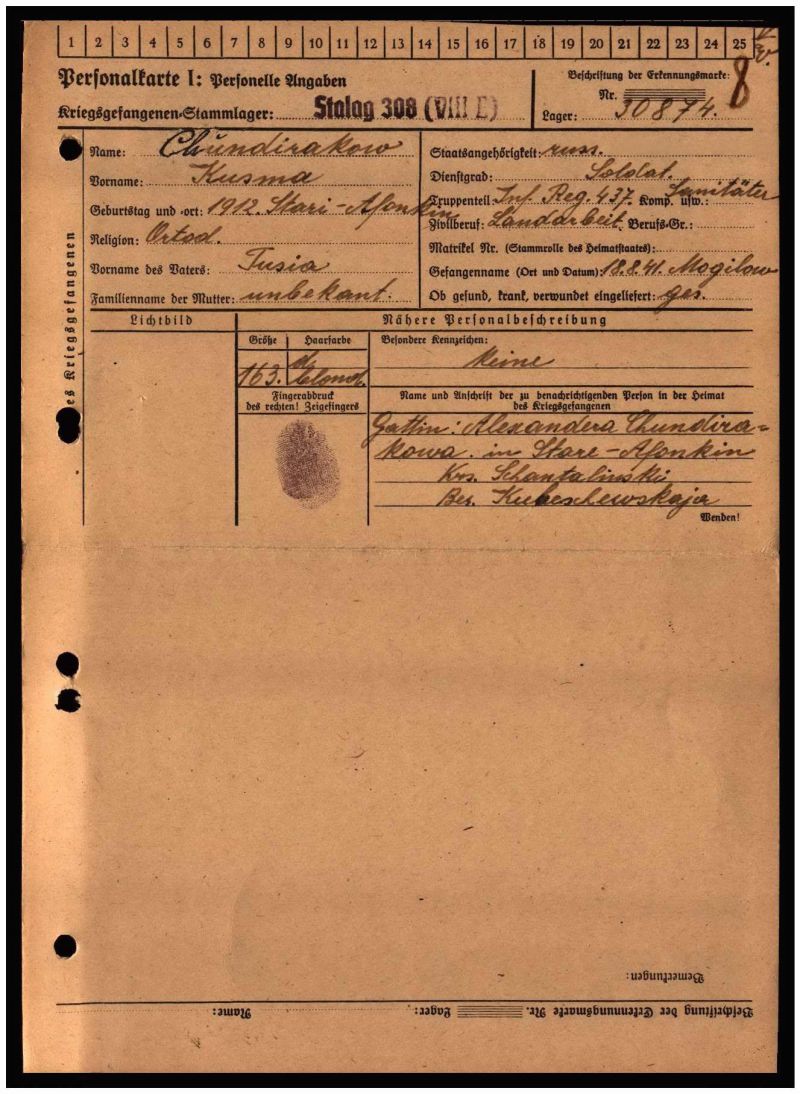 1 2 3 4 5 6 7 8 9 10 11 12 13 14 15 16 17 18 19 20 21 22 23 24 25
Personalkarte I: Personelle Angaben
Kriegsgefangenen-Stammlager: Stalag 308 (VIII E)
Beschriftung der Erkennungsmarke: 8
Nr.
Lager: 30874.
des Kriegsgefangenen
Name: Chundirakow
Vorname: Kusma
Geburtstag und -ort: 1912. Stari-Afonkin
Religion: Ortod.
Vorname des Vaters: Tusia
Familienname der Mutter: unbekant.
Staatsangehörigkeit: russ.
Dienstgrad: Soldat.
Truppenteil: Inf. Reg. 437. Komp. usw.: Sanitäter
Zivilberuf: Landarbeit. Berufs-Gr.:
Matrikel Nr. (Stammrolle des Heimatstaates):
Gefangenname (Ort und Datum): 18.8.41. Mogilow
Ob gesund, krank, verwundet eingeliefert: ges.
Lichtbild
Nähere Personalbeschreibung
Größe Haarfarbe
163. d. blond.
Besondere Kennzeichen:
Keine
Fingerabdruck
des rechten! Zeigefingers
Name und Anschrift der zu benachrichtigenden Person in der Heimat
des Kriegsgefangenen
Gattin: Alexandera Chundira-
kowa. in Stare-Afonkin
Krs. Schantalinski
Bes. Kubeschewskaja
Wenden!
Bemerkungen:
Beschriftung der Erkennungsmarke Nr. Lager: Name: